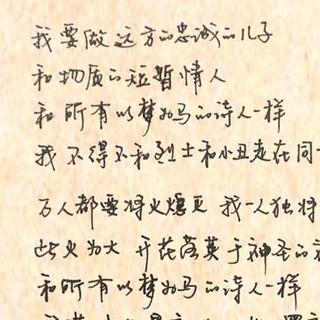 我要做远方的忠诚的儿子
和物质的短暂情人
和所有以梦为马的诗人一样
我不得不和烈士和小丑走在同一
万人都要将火熄灭 我一人独将
此火为大 开花落英于神圣的祖
和所有以梦为马的诗人一样